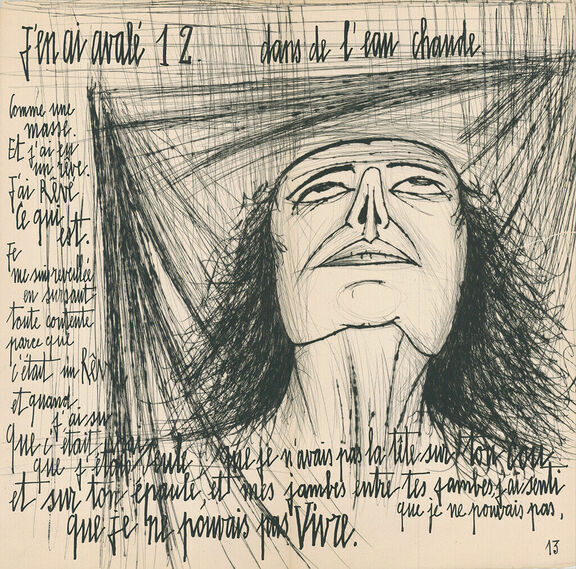 J'en ai avalé 12. dans de l'eau chaude.
Comme une
masse.
Et j'ai eu
un rêve.
J'ai Rêvé
Ce qui
est.
Je
me suis reveillée
en sursaut
toute contente
parce que
c'était un Rêve
et quand
j'ai su
que c'était vrai
que j'étais seule, que je n'avais pas la tête sur ton cou
et sur ton épaule, et mes jambes entre tes jambes, j'ai senti
que je ne pouvais pas,
que je ne pouvais pas Vivre.
13